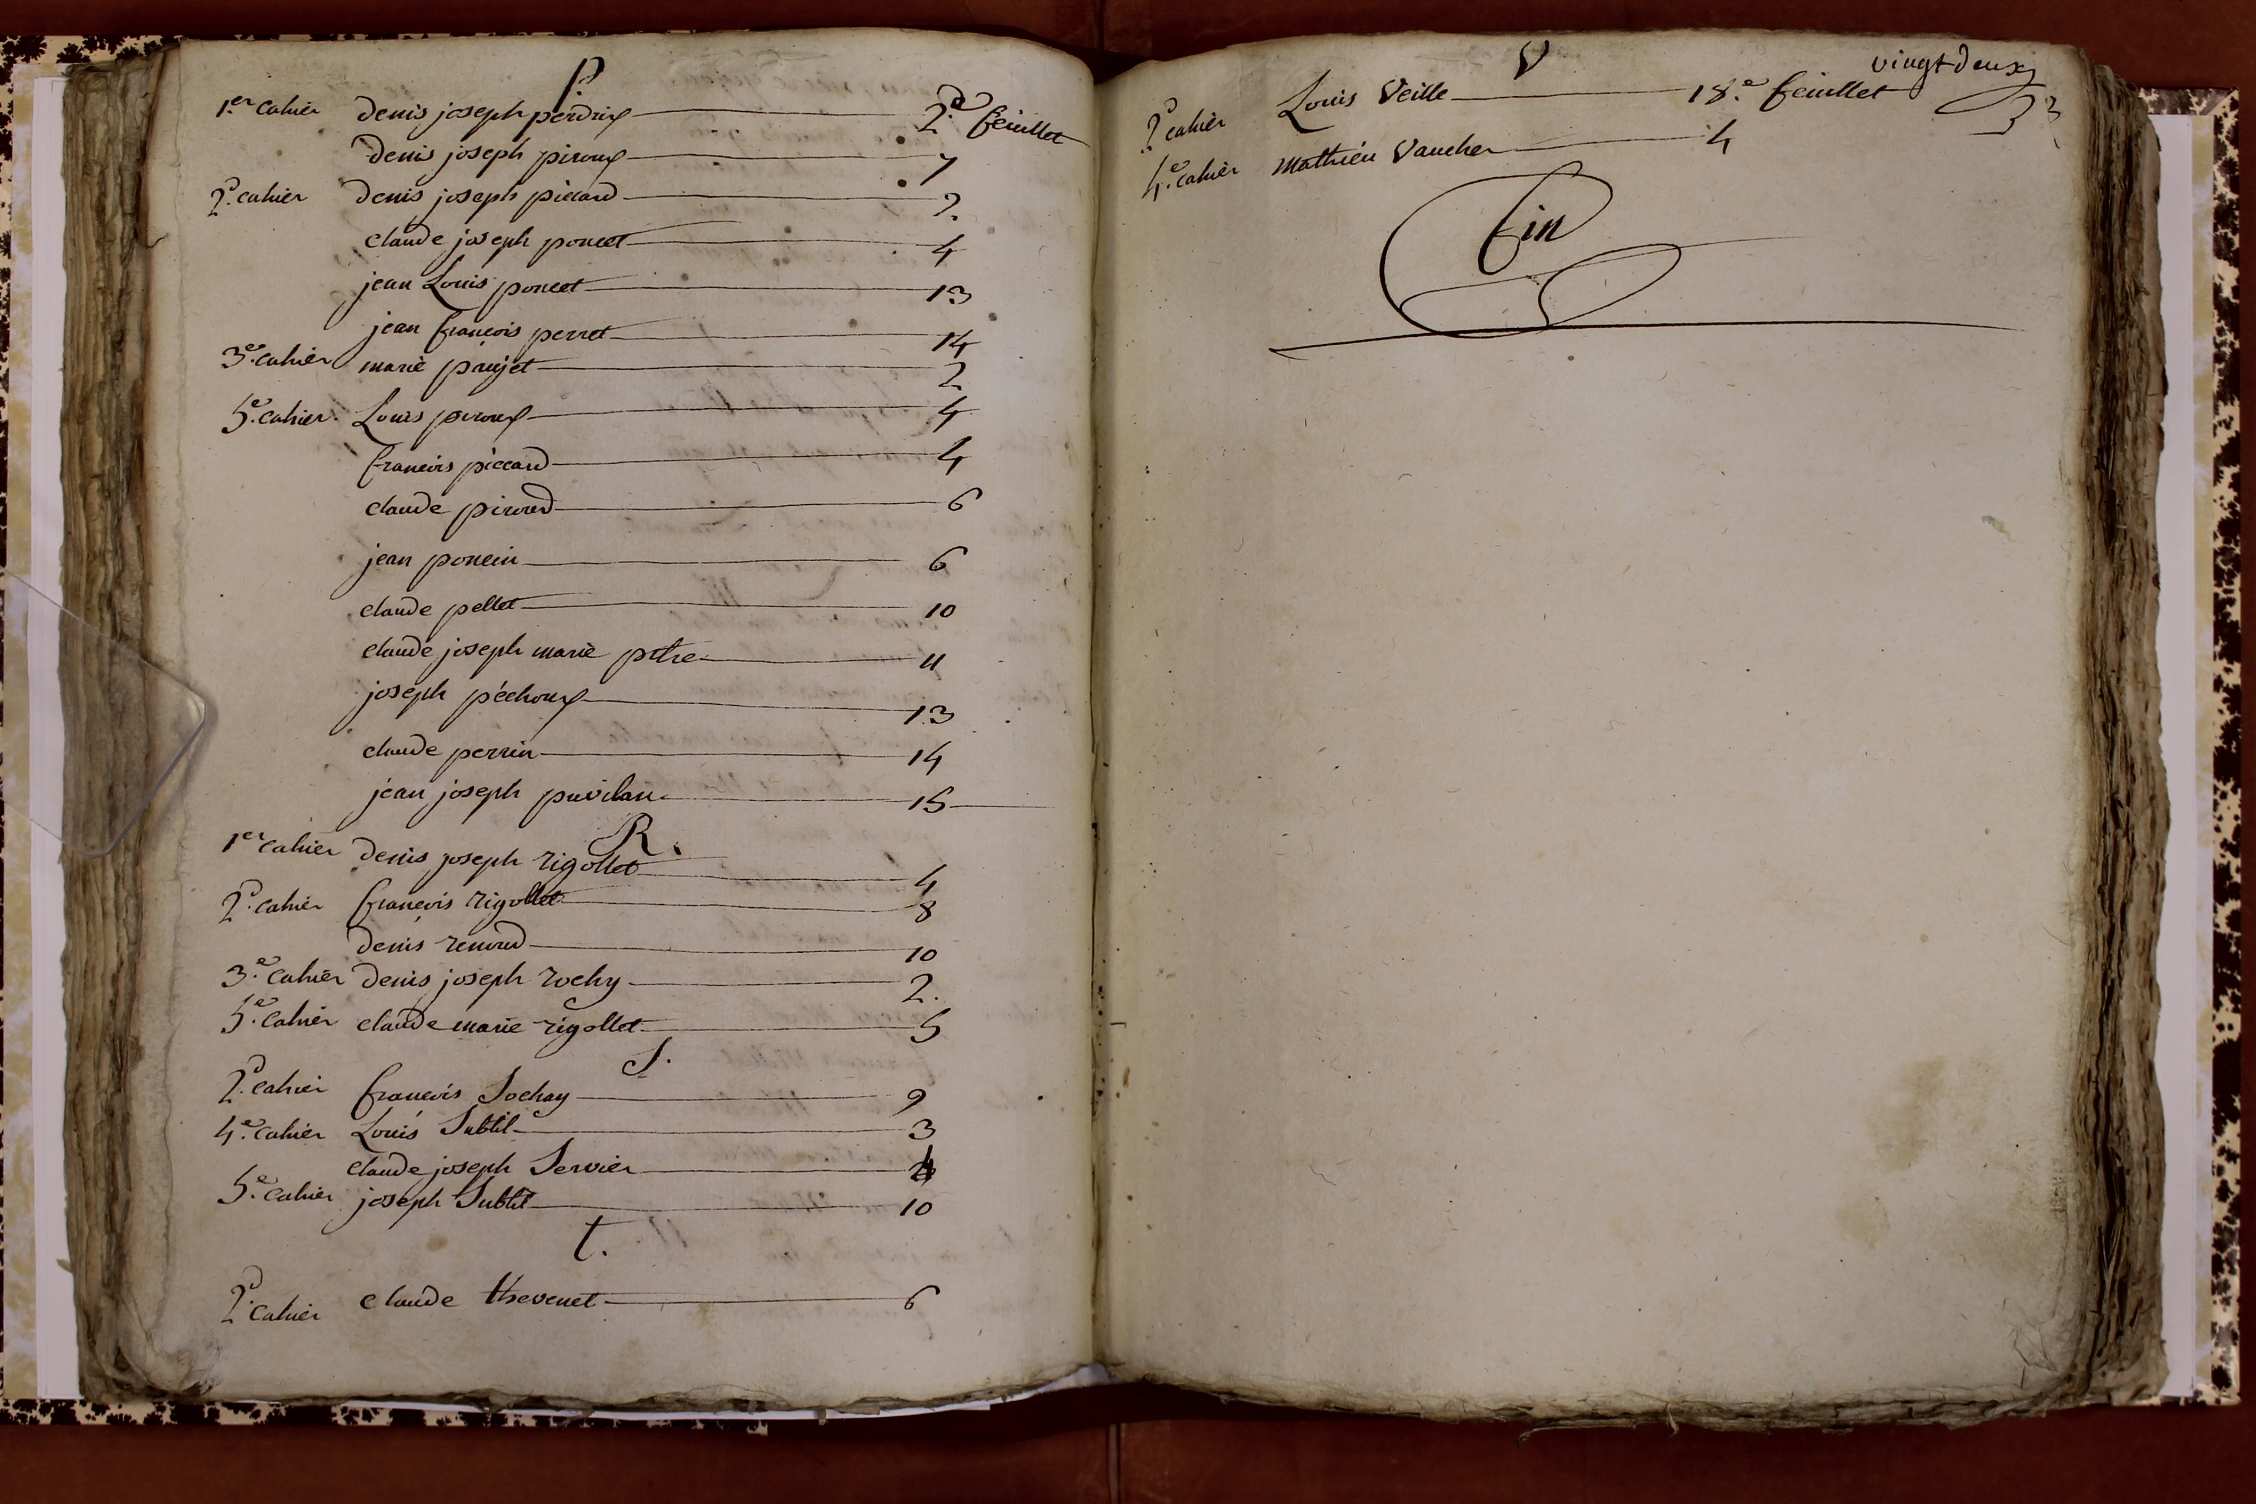 P.
1.er cahier denis joseph perdrix 2.d feuillet
denis joseph piroux 7
2.d cahier denis joseph piccard 2.
claude joseph poncet 4
jean Louis poncet 13
jean françois perret 14
3.e cahier marie paujet 2
5.e cahier Louis piroux 4
françois piccard 4
claude piroud 6
jean poncin 6
claude pellet 10
claude joseph marie pitre 11
joseph péchoux 13
claude perrin 14
jean joseph puvilan 15
R.
1er cahier denis joseph rigollet 4
2.d cahier françois rigollet 8
denis renoud 10
3.e cahier denis joseph rochy 2.
5.e cahier claude marie rigollet 5
S.
2.d cahier françois Sochay 9
4.e cahier Louis Subtil 3
claude joseph Servier 4
5.e cahier joseph Subtil 10
t.
2.d cahier claude thevenet 6
V
vingt deux
2.d cahier Louis Veille 18.e feuillet
4.e cahier mathieu Vaucher 4
fin